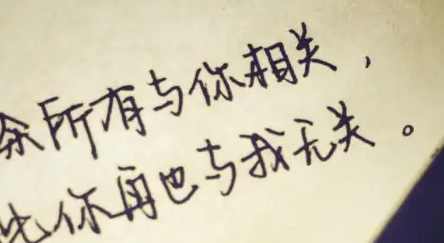 所有与你相关，
你再也与我无关。